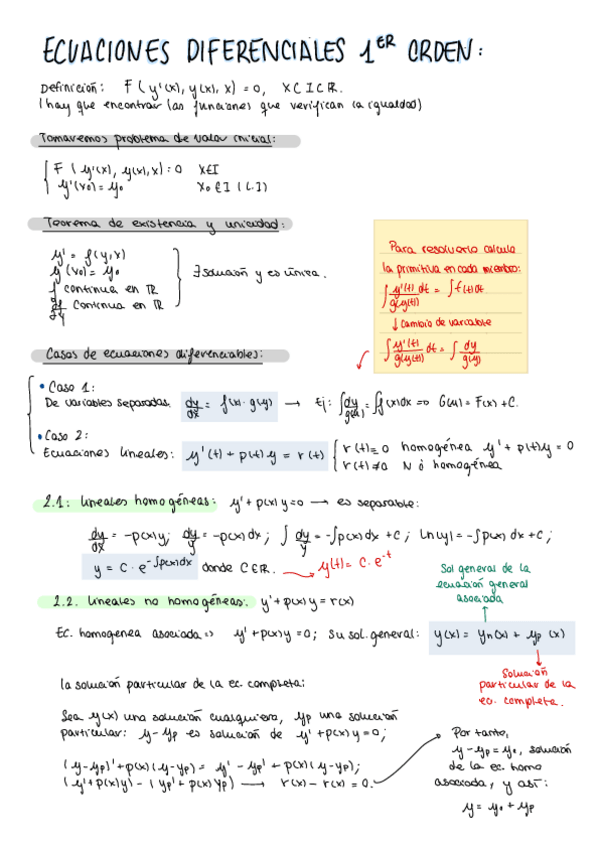 ECUACIONES DIFERENCIALES 1ER ORDEN:
Definición: F(y'(x), y(x), x) = 0, X ⊂ I ⊂ R.
(hay que encontrar las funciones que verifican la igualdad)
Tomaremos problema de valor inicial:
F(y'(x), y(x), x) = 0 X∈I
y'(x0) = y0 X0 ∈ I (C.I)
Teorema de existencia y unicidad:
y' = f(y,x)
y(x0) = y0
f continua en R
df/dy continua en R
∃ solución y es única.
Para resolverlo calculo
la primitiva en cada miembro:
∫ y'(t)/g(y(t)) dt = ∫ f(t) dt
↓ cambio de variable
∫ y'(t)/g(y(t)) dt = ∫ dy/g(y)
Casos de ecuaciones diferenciables:
• Caso 1:
De variables separadas, dy/dx = f(x) · g(y) → Ej: ∫ dy/g(y) = ∫ f(x)dx => G(y) = F(x) + C.
• Caso 2:
Ecuaciones lineales: y'(t) + p(t) y = r(t)
r(t) = 0 homogénea y' + p(t)y = 0
r(t) ≠ 0 No homogénea
2.1: Lineales homogéneas: y' + p(x) y = 0 → es separable:
dy/dx = -p(x) y; dy/y = -p(x) dx; ∫ dy/y = -∫p(x) dx + C; Ln|y| = -∫p(x) dx + C;
y = C · e^-∫p(x)dx donde C∈R. → y(t) = C · e^-t
2.2. Lineales no homogéneas: y' + p(x) y = r(x)
Sol general de la
ecuación general
asociada
Ec. homogenea asociada => y' + p(x) y = 0; su sol. general: y(x) = yh(x) + yp(x)
Solución
particular de la
ec. completa.
la solución particular de la ec. completa:
Sea y(x) una solución cualquiera, yp una solución
particular: y-yp es solución de y' + p(x) y = 0;
(y-yp)' + p(x) (y-yp) = y' - yp' + p(x) (y-yp);
(y' + p(x)y) - (yp' + p(x) yp) → r(x) - r(x) = 0.
Por tanto,
y-yp = y0, solución
de la ec. homo
asociada, y así:
y = y0 + yp